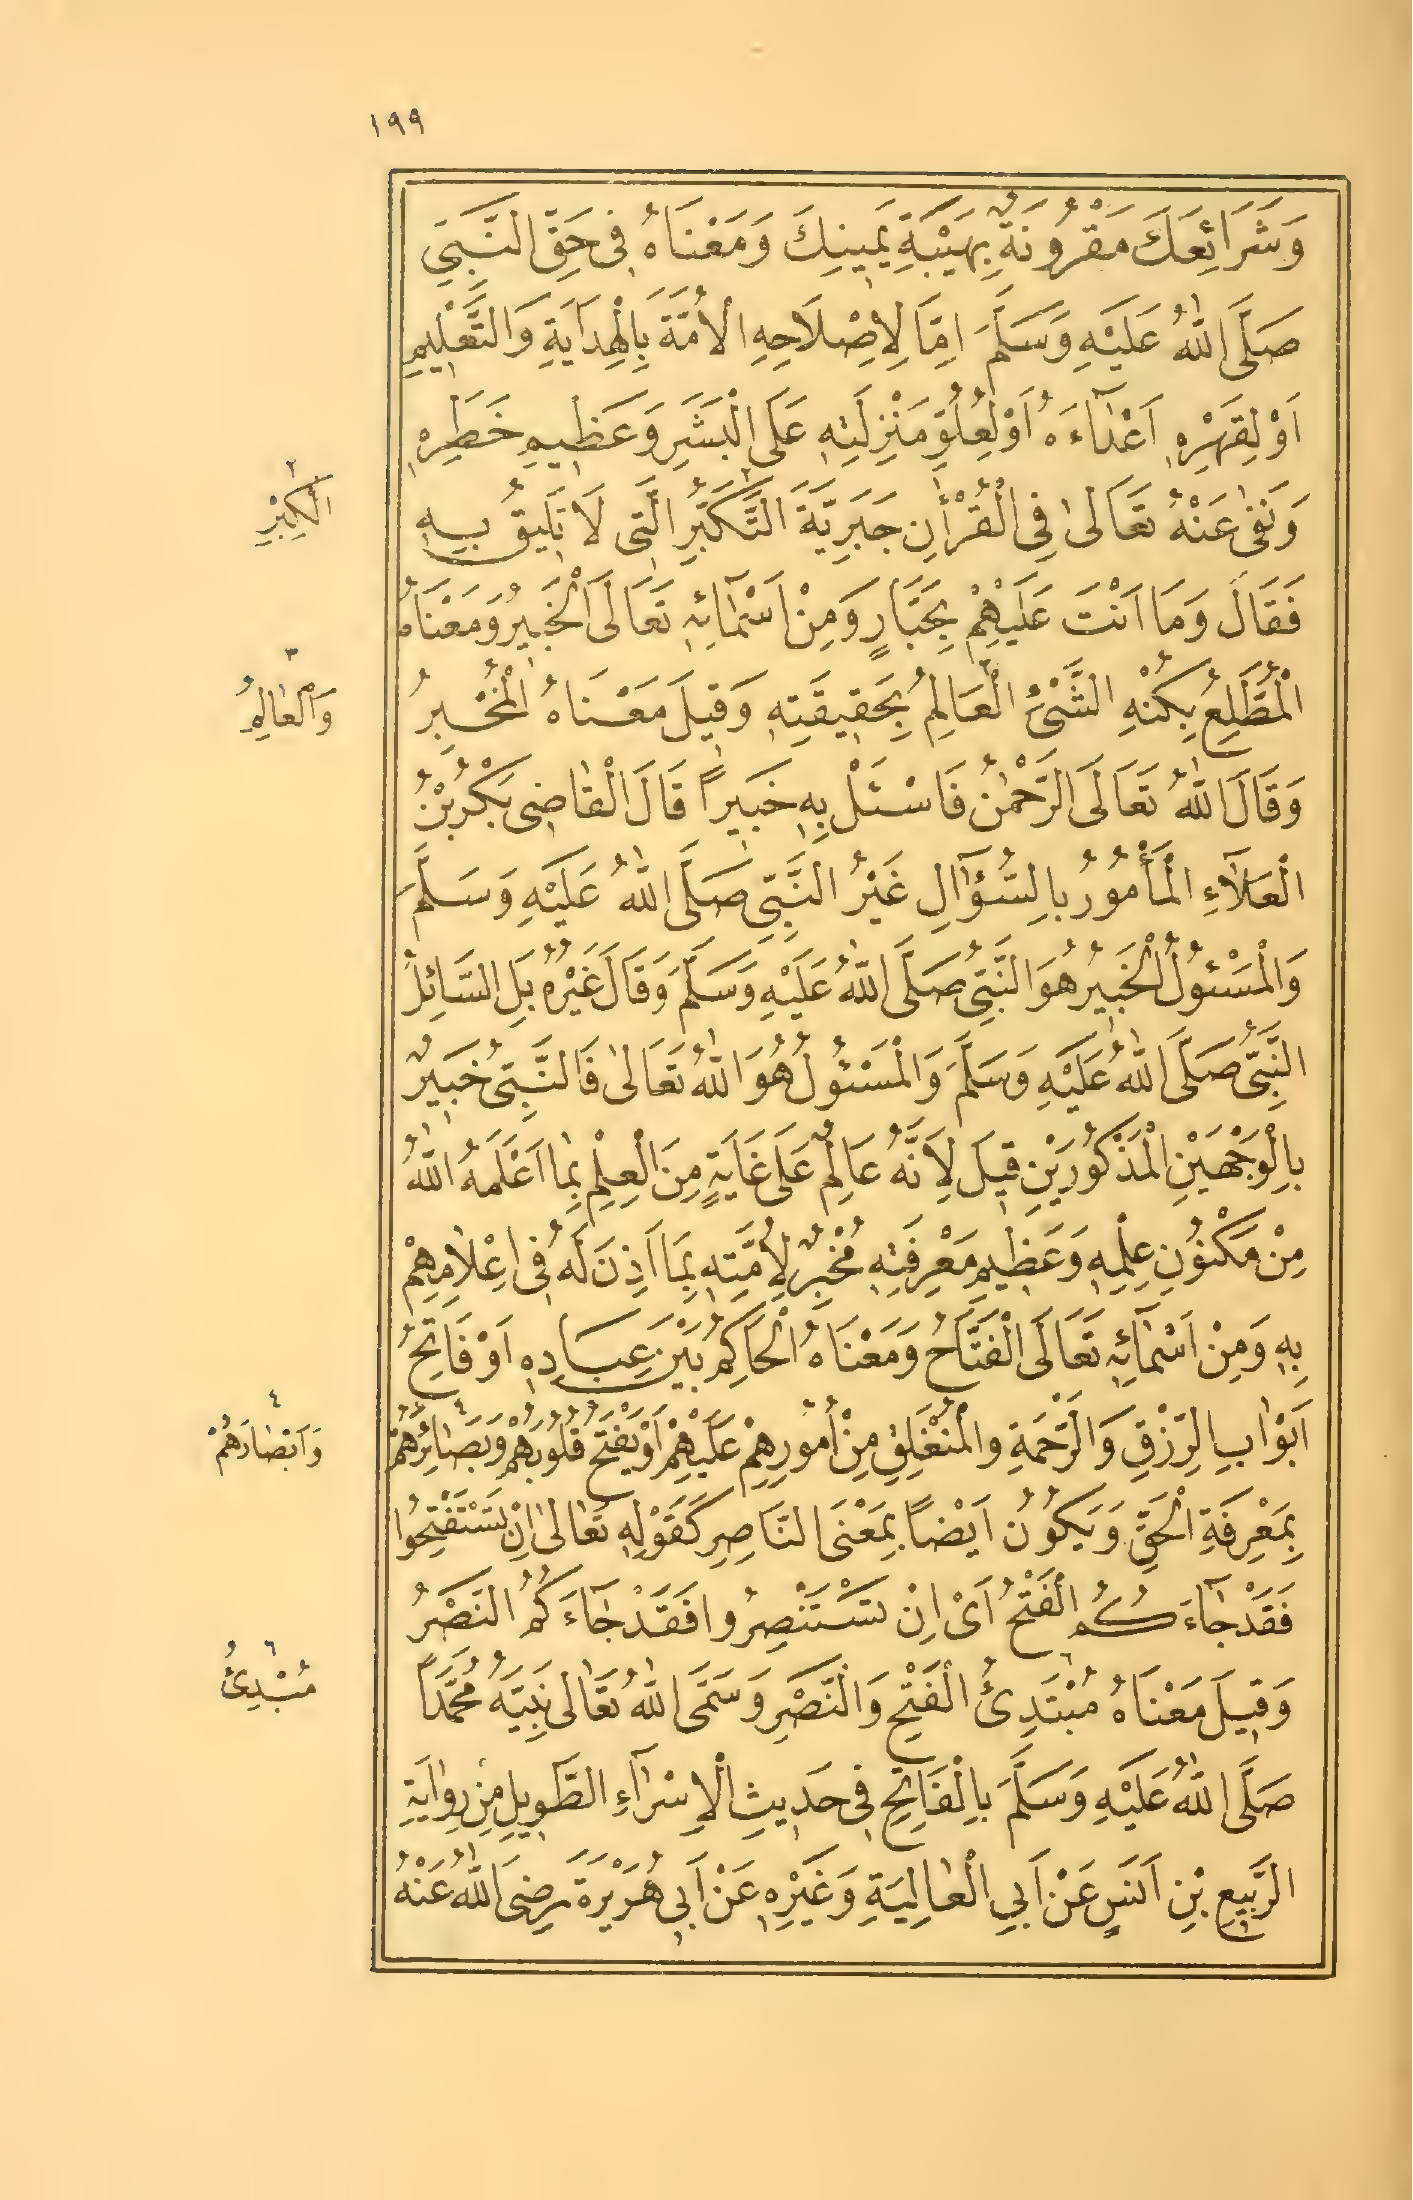 ١٩٩
وَشَرَائِعَكَ مَقْرُونَةٌ بِهَيْبَةِ يَمِينِكَ وَمَعْنَاهُ فِى حَقِّ النَّبِىِّ
صَلَّى اللّٰهُ عَلَيْهِ وَسَلَّمَ اِمَّا لِاِصْلَاحِهِ الْاُمَّةَ بِالْهِدَايَةِ وَالتَّعْلِيمِ
اَوْ لِقَهْرِهِ اَعْدَآءَهُ اَوْ لِعُلُوِّ مَنْزِلَتِهِ عَلَى الْبَشَرِ وَعَظِيمِ خَطَرِهِ
وَنَفٰى عَنْهُ تَعَالٰى فِى الْقُرْاٰنِ جَبَرِيَّةَ التَّكَبُّرِ٢ الَّتِى لَا تَلِيقُ بِهِ
٢ الْكِبْرِ
فَقَالَ وَمَا اَنْتَ عَلَيْهِمْ بِجَبَّارٍ وَمِنْ اَسْمَآئِهِ تَعَالَى الْخَبِيرُ وَمَعْنَاهُ
الْمُطَّلِعُ بِكُنْهِ الشَّىْءِ الْعَالِمُ٣ بِحَقِيقَتِهِ وَقِيلَ مَعْنَاهُ الْمُخْبِرُ
٣ وَالْعَالِمُ
وَقَالَ اللّٰهُ تَعَالَى الرَّحْمٰنُ فَاسْئَلْ بِهِ خَبِيرًا قَالَ الْقَاضِى بَكْرُ بْنُ
الْعَلَآءِ الْمَأْمُورُ بِالسُّؤَالِ غَيْرُ النَّبِىِّ صَلَّى اللّٰهُ عَلَيْهِ وَسَلَّمَ
وَالْمَسْئُولُ الْخَبِيرُ هُوَ النَّبِىُّ صَلَّى اللّٰهُ عَلَيْهِ وَسَلَّمَ وَقَالَ غَيْرُهُ بَلِ السَّائِلُ
النَّبِىُّ صَلَّى اللّٰهُ عَلَيْهِ وَسَلَّمَ وَالْمَسْئُولُ هُوَ اللّٰهُ تَعَالٰى فَالنَّبِىُّ خَبِيرٌ
بِالْوَجْهَيْنِ الْمَذْكُورَيْنِ قِيلَ لِاَنَّهُ عَالِمٌ عَلَى غَايَةٍ مِنَ الْعِلْمِ بِمَا اَعْلَمَهُ اللّٰهُ
مِنْ مَكْنُونِ عِلْمِهِ وَعَظِيمِ مَعْرِفَتِهِ مُخْبِرٌ لِاُمَّتِهِ بِمَا اَذِنَ لَهُ فِى اِعْلَامِهِمْ
بِهِ وَمِنْ اَسْمَآئِهِ تَعَالَى الْفَتَّاحُ وَمَعْنَاهُ الْحَاكِمُ بَيْنَ عِبَادِهِ اَوْ فَاتِحُ
اَبْوَابِ الرِّزْقِ وَالرَّحْمَةِ وَالْمُنْغَلِقِ مِنْ اُمُورِهِمْ عَلَيْهِمْ اَوْ يَفْتَحُ قُلُوبَهُمْ وَبَصَائِرَهُمْ٤
٤ وَاَبْصَارَهُمْ
بِمَعْرِفَةِ الْحَقِّ وَيَكُونُ اَيْضًا بِمَعْنَى النَّاصِرِ كَقَوْلِهِ تَعَالٰى اِنْ تَسْتَفْتِحُوا
فَقَدْ جَآءَكُمُ الْفَتْحُ اَىْ اِنْ تَسْتَنْصِرُوا فَقَدْ جَآءَكُمُ النَّصْرُ
وَقِيلَ مَعْنَاهُ مُبْتَدِئُ٦ الْفَتْحِ وَالنَّصْرِ وَسَمَّى اللّٰهُ تَعَالٰى نَبِيَّهُ مُحَمَّدًا
٦ مُبْدِئُ
صَلَّى اللّٰهُ عَلَيْهِ وَسَلَّمَ بِالْفَاتِحِ فِى حَدِيثِ الْاِسْرَآءِ الطَّوِيلِ مِنْ رِوَايَةِ
الرَّبِيعِ بْنِ اَنَسٍ عَنْ اَبِى الْعَالِيَةِ وَغَيْرِهِ عَنْ اَبِى هُرَيْرَةَ رَضِىَ اللّٰهُ عَنْهُ